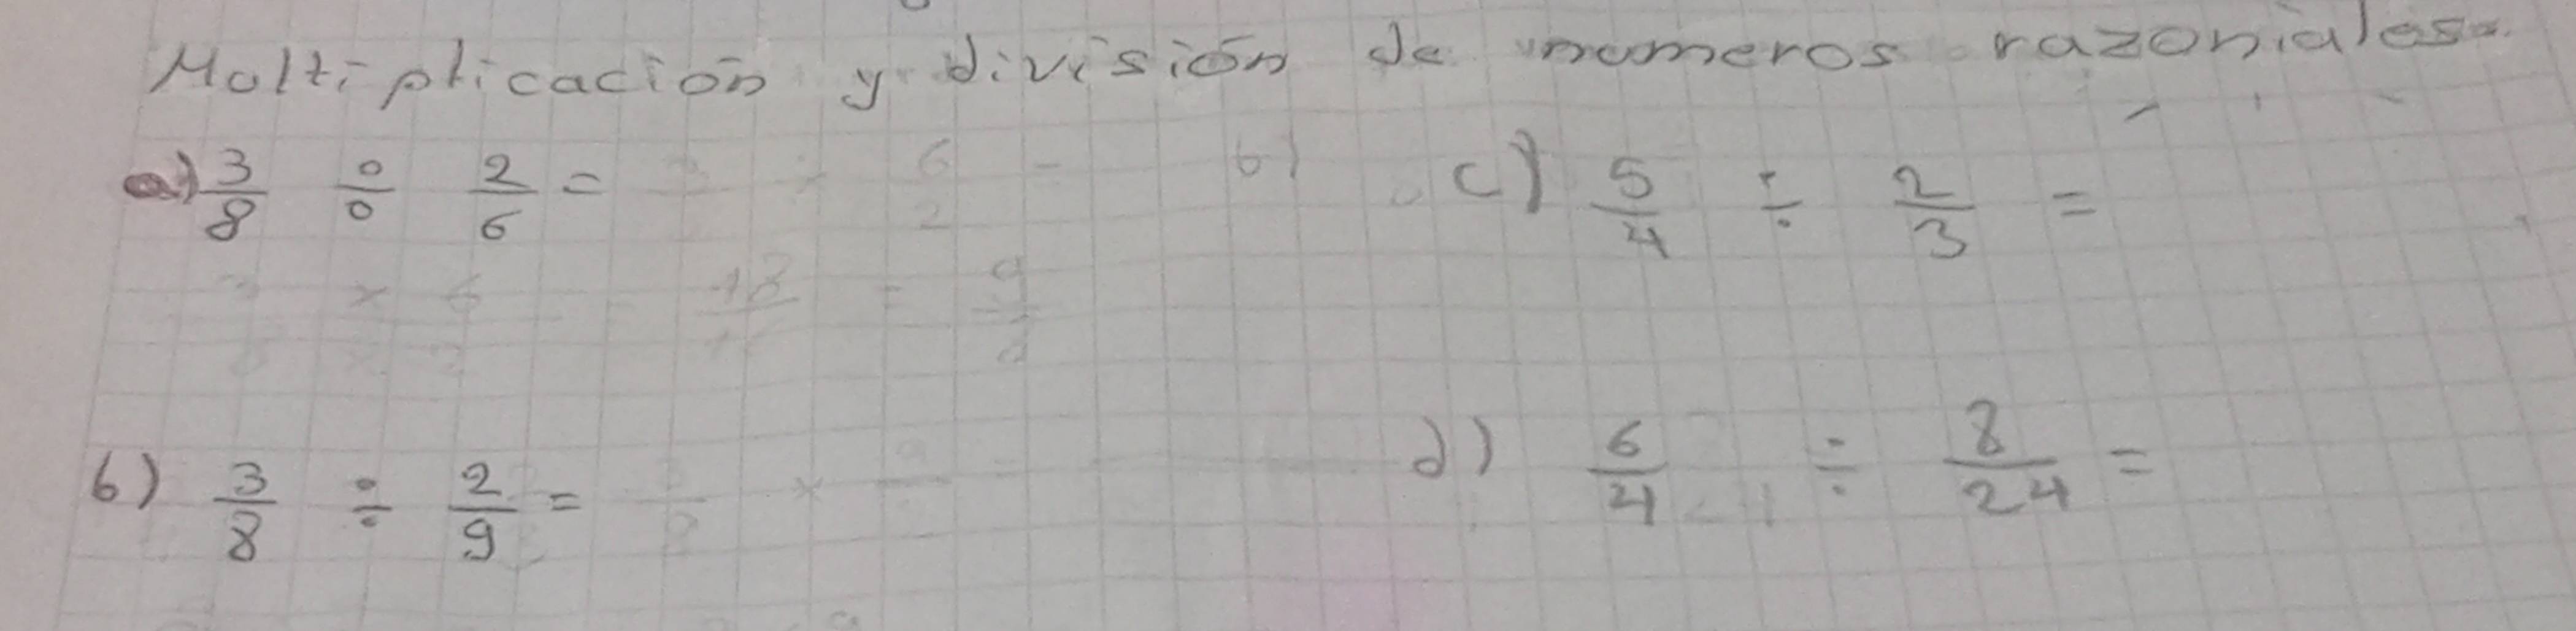 Moltiplicación y división de nomeros razoniales
a) 3/8 ÷ 2/6 =
c) 5/4 ÷ 2/3 =
b) 3/8 ÷ 2/9 =
d) 6/4 ÷ 8/24 =